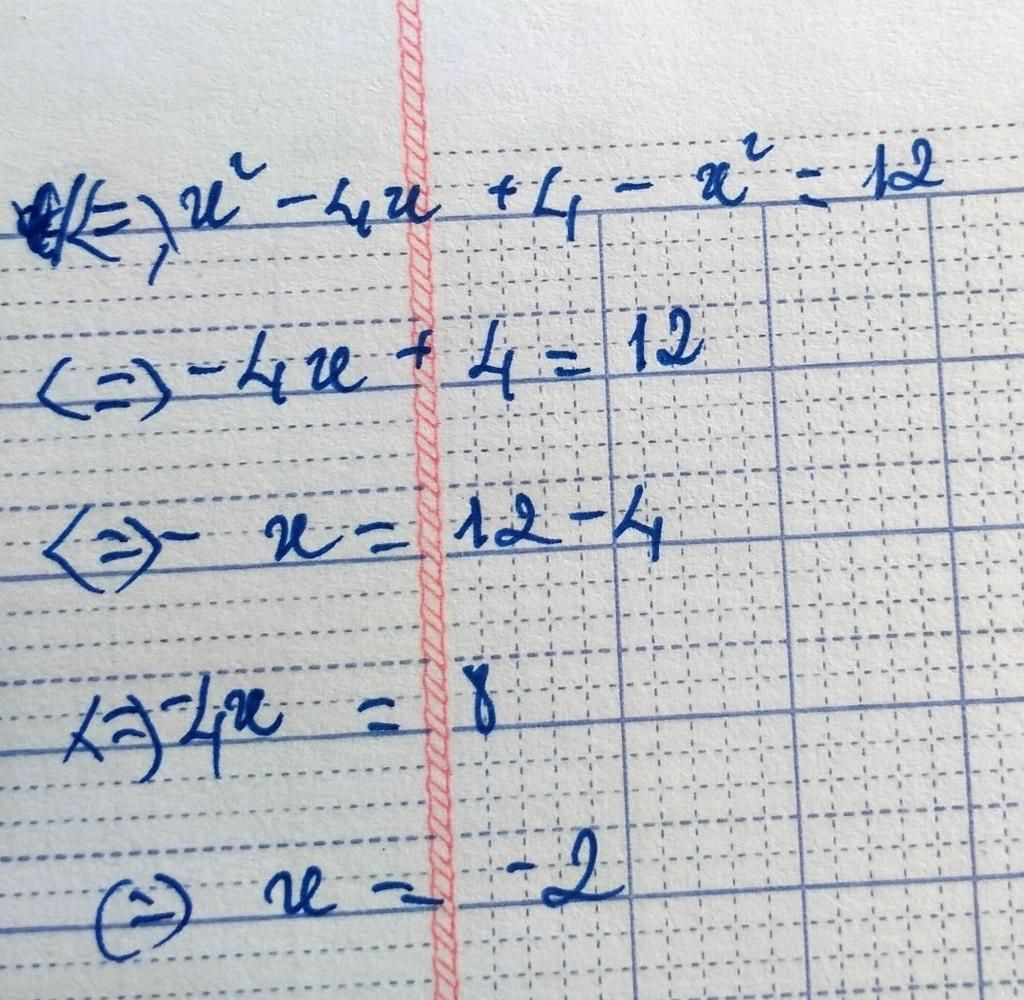 <=> x² - 4x + 4 - x² = 12
<=> - 4x + 4 = 12
<=> - x = 12 - 4
<=> - 4x = 8
<=> x = -2